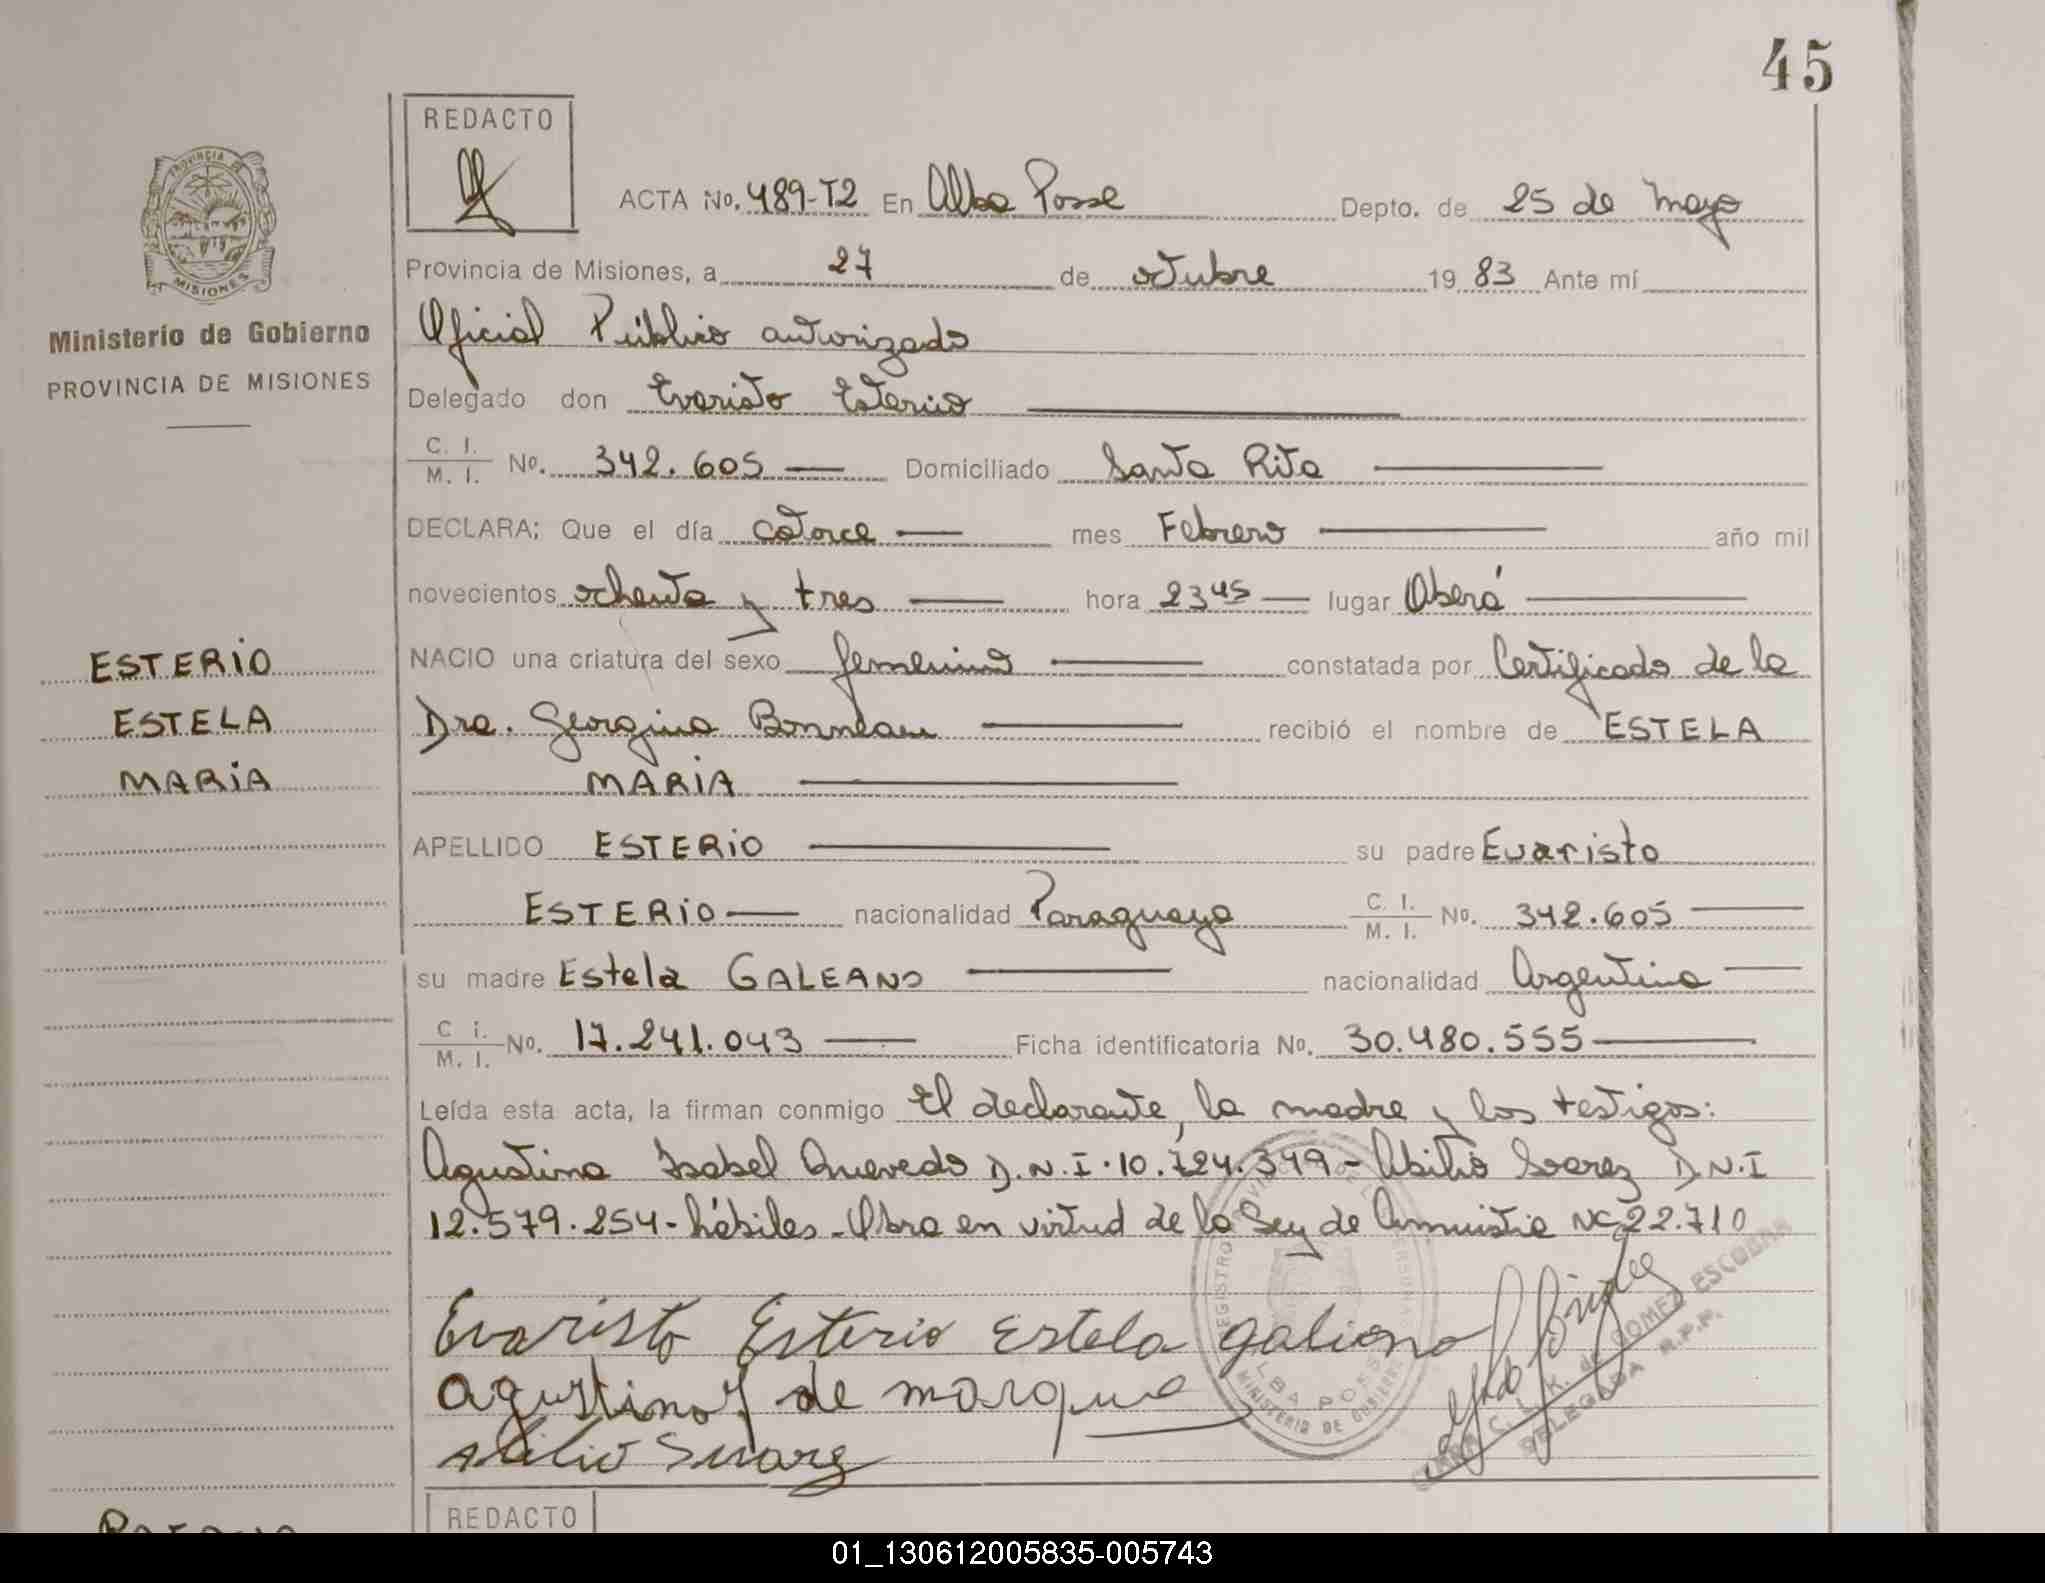 45
REDACTO
ACTA No. 489-T2 En Alba Posse Depto. de 25 de Mayo
PROVINCIA DE MISIONES
Provincia de Misiones, a 27 de octubre 19 83 Ante mí
Ministerio de Gobierno
PROVINCIA DE MISIONES
Oficial Público autorizado
Delegado don Evaristo Esterio
C. I. / M. I. No. 342.605 Domiciliado Santa Rita
DECLARA; Que el día catorce mes Febrero año mil
novecientos ochenta y tres hora 23 45 lugar Oberá
ESTERIO
NACIO una criatura del sexo femenino constatada por Certificado de la
ESTELA
Dra. Georgina Bonneau recibió el nombre de ESTELA
MARIA
MARIA
APELLIDO ESTERIO su padre Evaristo
ESTERIO nacionalidad Paraguaya C. I. / M. I. No. 342.605
su madre Estela GALEANO nacionalidad Argentina
C i. / M. I. No. 17.241.043 Ficha identificatoria No. 30.480.555
Leída esta acta, la firman conmigo El declarante, la madre y los testigos:
Agustina Isabel Quevedo D.N.I. 10.724.349 - Abilio Soarez D.N.I
12.579.254 - hábiles - Obra en virtud de la Ley de Amnistia Nº 22.710
Evaristo Esterio Estela galiano
agustina de marque
Abilio Suarez
REGISTRO
ALBA POSSE
MINISTERIO DE GOBIERNO
de GOMEZ ESCOBAR
DELEGADA R.P.P.
REDACTO
01_130612005835-005743